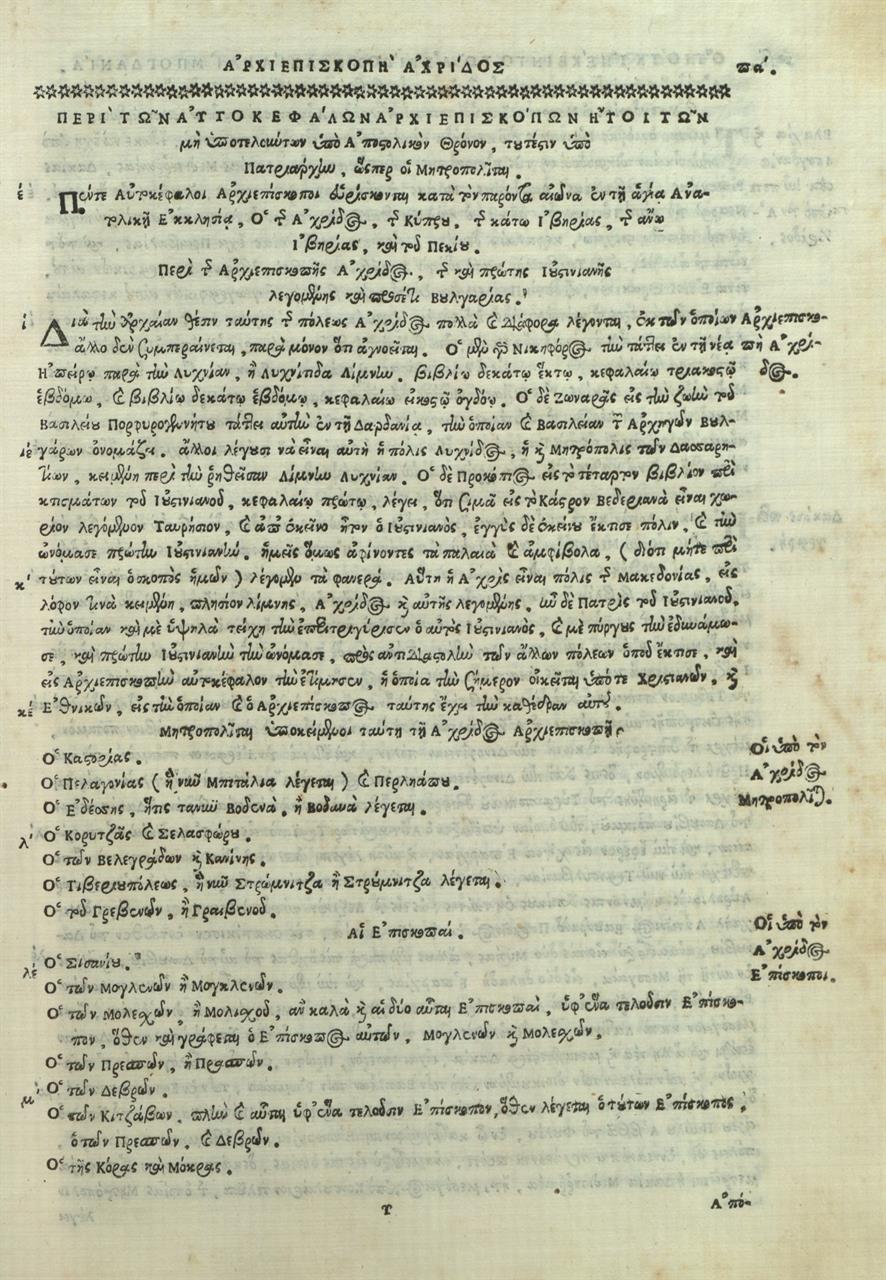 ἈΡΧΙΕΠΙΣΚΟΠῊ ἈΧΡΊΔΟΣ
πα΄.
ΠΕΡῚ ΤΩ͂Ν ΑΥ̓ΤΟΚΕΦΆΛΩΝ ἈΡΧΙΕΠΙΣΚΌΠΩΝ ἬΤΟΙ ΤΩ͂Ν
μὴ ὑποτελούντων ὑπὸ Ἀποστολικὸν Θρόνον, τουτέστιν ὑπὸ
Πατριάρχην, ὥσπερ οἱ Μητροπολῖται.
έ Πέντε Αὐτοκέφαλοι Ἀρχιεπίσκοποι εὑρίσκονται κατὰ τὸν παρόντα αἰῶνα ἐν τῇ ἁγίᾳ Ἀνα-
τολικῇ Ἐκκλησίᾳ, Ὁ τῆς Ἀχρίδος, τῆς Κύπρου, τῆς κάτω Ἰβηρίας, τῆς ἄνω
Ἰβηρίας, καὶ τοῦ Πεκίου.
Περὶ τῆς Ἀρχιεπισκοπῆς Ἀχρίδος, τῆς καὶ πρώτης Ἰουστινιανῆς
λεγομένης καὶ προσέτι Βουλγαρίας.
ί Διὰ τὴν ἀρχαίαν θέσιν ταύτης τῆς πόλεως Ἀχρίδος πολλὰ καὶ διάφορα λέγονται, ἐκ τῶν ὁποίων
Ἀρχιεπισκο-
πὴ Ἀχρί-
δος.
ἄλλο δὲν συμπεραίνεται, παρὰ μόνον ὅτι ἀγνοεῖται. Ὁ μὲν γὰρ Νικηφόρος τὴν τάττει ἐν τῇ νέᾳ
Ἠπείρῳ παρὰ τὴν Λυχνίαν, ἢ Λυχνίτιδα Λίμνην. βιβλίῳ δεκάτῳ ἕκτῳ, κεφαλαίῳ τριακοστῷ
ἑβδόμῳ, καὶ βιβλίῳ δεκάτῳ ἑβδόμῳ, κεφαλαίῳ εἰκοστῷ ὀγδόῳ. Ὁ δὲ Ζωναρᾶς εἰς τὴν ζωὴν τοῦ
Βασιλείου Πορφυρογεννήτου τάττει αὐτὴν ἐν τῇ Δαρδανίᾳ, τὴν ὁποίαν καὶ Βασιλείαν τῶν Ἀρχηγῶν Βουλ-
ιέ γάρων ὀνομάζει. ἄλλοι λέγουσι νὰ εἶναι αὐτὴ ἡ πόλις Λυχνίδος, ἡ καὶ Μητρόπολις τῶν Δασσαρη-
τίων, κειμένη περὶ τὴν ῥηθεῖσαν Λίμνην Λυχνίαν. Ὁ δὲ Προκόπιος εἰς τὸ τέταρτον βιβλίον περὶ
κτισμάτων τοῦ Ἰουστινιανοῦ, κεφαλαίῳ πρώτῳ, λέγει, ὅτι σιμὰ εἰς τὸ Κάστρον Βεδεριανὰ εἶναι χω-
ρίον λεγόμενον Ταυρήσιον, καὶ ἀπὸ ἐκεῖνο ἦτον ὁ Ἰουστινιανός, ἐγγὺς δὲ ἐκείνου ἔκτισε πόλιν, καὶ τὴν
ὠνόμασε πρώτην Ἰουστινιανήν. ἡμεῖς ὅμως ἀφίνοντες τὰ παλαιὰ καὶ ἀμφίβολα, (διότι μήτε περὶ
κ΄ τούτων εἶναι ὁ σκοπὸς ἡμῶν) λέγομεν τὰ φανερά. Αὕτη ἡ Ἀχρὶς εἶναι πόλις τῆς Μακεδονίας, εἰς
λόφον τινὰ κειμένη, πλησίον λίμνης, Ἀχρίδος καὶ αὐτῆς λεγομένης, ἦν δὲ Πατρὶς τοῦ Ἰουστινιανοῦ,
τὴν ὁποίαν καὶ μὲ ὑψηλὰ τείχη τὴν ἐπεριτριγύρισεν ὁ αὐτὸς Ἰουστινιανός, καὶ μὲ πύργους τὴν ἐδυνάμω-
σε, καὶ πρώτην Ἰουστινιανὴν τὴν ὠνόμασε, πρὸς ἀντιδιαστολὴν τῶν ἄλλων πόλεων ὁποῦ ἔκτισε, καὶ
εἰς Ἀρχιεπισκοπὴν αὐτοκέφαλον τὴν ἐτίμησεν, ἡ ὁποία τὴν σήμερον οἰκεῖται ὑπό τε Χριστιανῶν, καὶ
κέ Ἐθνικῶν, εἰς τὴν ὁποίαν καὶ ὁ Ἀρχιεπίσκοπος ταύτης ἔχει τὴν καθέδραν αὐτοῦ.
Μητροπολῖται ὑποκείμενοι ταύτῃ τῇ Ἀχρίδος Ἀρχιεπισκοπῇ.
Οἱ ὑπὸ τὸν
Ἀχρίδος
Μητροπολῖται.
Ὁ Καστορίας.
Ὁ Πελαγονίας (ἢ νῦν Μπιτάλια λέγεται) καὶ Περλιάπου.
Ὁ Ἐδέσσης, ἥτις τανῦν Βοδενὰ, ἢ Βοδανὰ λέγεται.
λ΄ Ὁ Κορυτζᾶς καὶ Σελασφόρου.
Ὁ τῶν Βελεγράδων καὶ Κανίνης.
Ὁ Τιβεριουπόλεως, ἢ νῦν Στρώμνιτζα ἢ Στρούμνιτζα λέγεται.
Ὁ τοῦ Γρεβενῶν, ἢ Γραιβενοῦ.
Αἱ Ἐπισκοπαί.
Οἱ ὑπὸ τὸν
Ἀχρίδος
Ἐπίσκοποι.
λέ Ὁ Σισανίου.
Ὁ τῶν Μογλενῶν ἢ Μογκλενῶν.
Ὁ τῶν Μολεχῶν, ἢ Μολισχοῦ, ἂν καλὰ καὶ αἱ δύο αὗται Ἐπισκοπαὶ, ὑφ' ἕνα τελοῦσιν Ἐπίσκο-
πον, ὅθεν καὶ γράφεται ὁ Ἐπίσκοπος αὐτῶν, Μογλενῶν καὶ Μολεχῶν.
Ὁ τῶν Πρεσπῶν, ἢ Πρασπῶν.
μ΄ Ὁ τῶν Δεβρῶν.
Ὁ τῶν Κιτζάβων. πλὴν καὶ αὗται ὑφ' ἕνα τελοῦσιν Ἐπίσκοπον, ὅθεν λέγεται ὁ τούτων Ἐπίσκοπος,
ὁ τῶν Πρεσπῶν, καὶ Δεβρῶν.
Ὁ τῆς Κόρας καὶ Μόκρας.
Υ
Ἀπό-